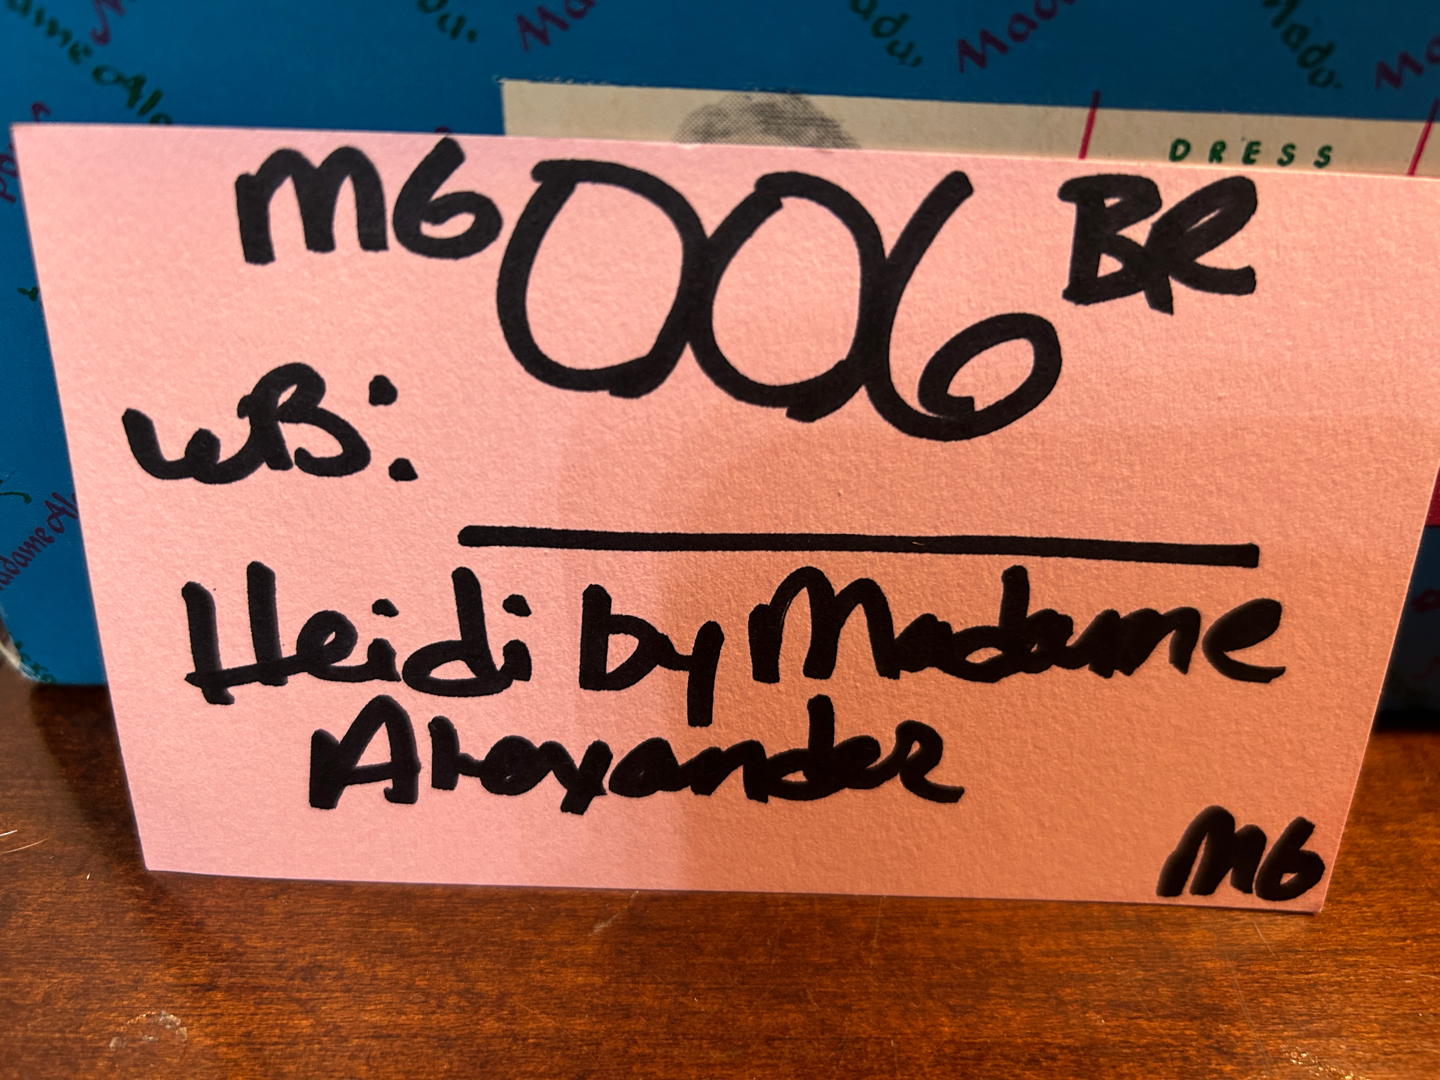 Madame Alexander
DRESS
MG 006 BR
WB:
Heidi by Madame
Alexander
MG